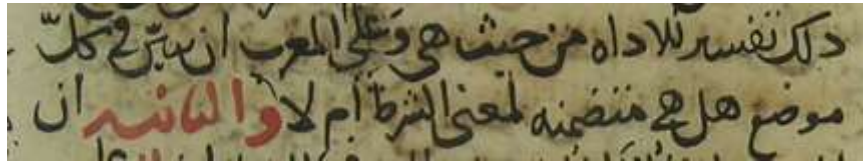 ذلك تفسير للاداه من حيث هي وعلى المعرب ان يبين في كل
موضع هل هي متضمنه لمعنى الشرط أم لا والثانيه أن